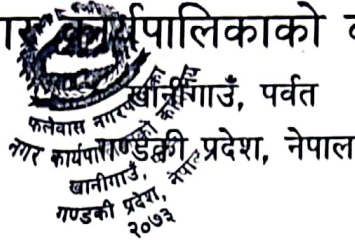 कार्यपालिकाको
खानीगाउँ, पर्वत
गण्डकी प्रदेश, नेपाल
फलेवास नगरपालिका
नगर कार्यपालिकाको कार्यालय
खानीगाउँ,
गण्डकी प्रदेश, नेपाल
२०७३